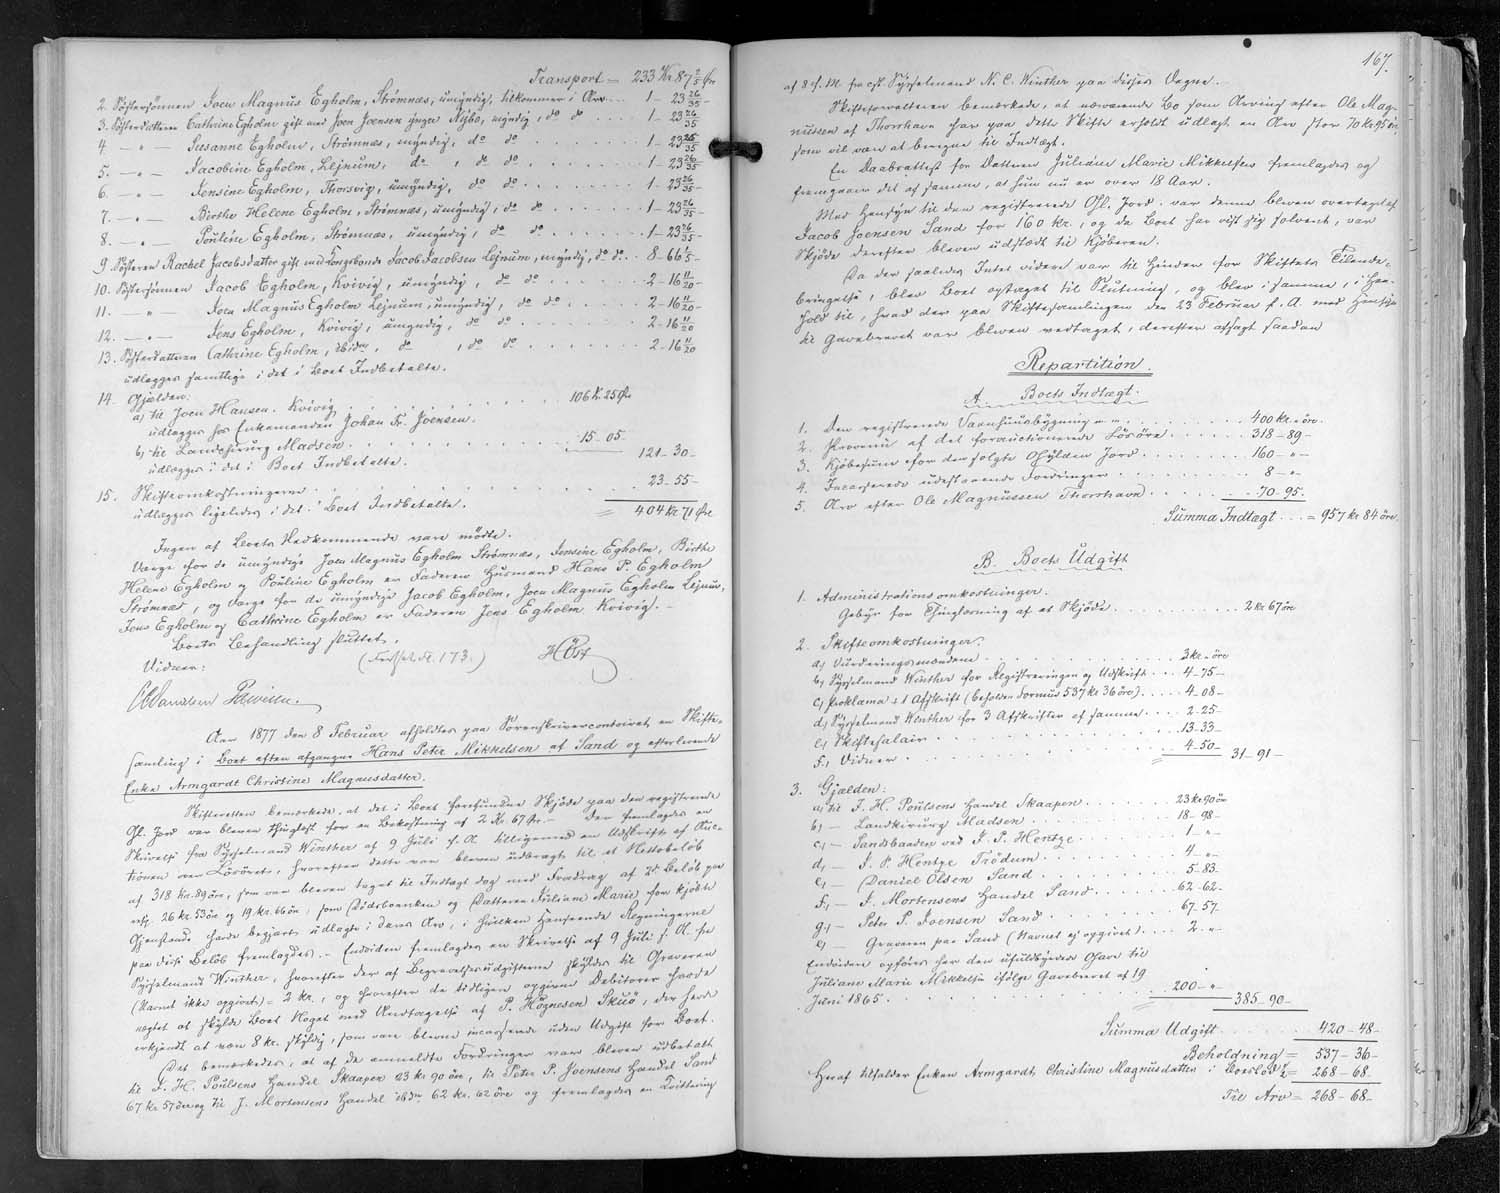 Transport = 233 Kr 87 2/5 Øre
2. Søstersønnen Joen Magnus Egholm, Strømnæs, umyndig, tilkommer i Arv . . . 1 - 23 26/35 -
3. Søsterdatteren Cathrine Egholm gift med Joen Joensen yngre Nybo, myndig, do do . . . . 1 - 23 26/35
4 — „ — Susanne Egholm, Strømnæs, myndig, do do . . . . . . . 1 - 23 26/35 -
5. — „ — Jacobine Egholm, Lejnum, do , do do . . . . . . . 1 - 23 26/35
6. — „ — Jensine Egholm, Thorsvig, umyndig, do do . . . . . . . 1 - 23 26/35 -
7. — „ — Birthe Helene Egholm, Strømnæs, umyndig, do do . . . . . . 1 - 23 26/35
8. — „ — Pouline Egholm, Strømnæs, umyndig, do do . . . . . . 1 - 23 26/35
9. Søsteren Rachel Jacobsdatter gift med Kongsbonde Jacob Jacobsen Lejnum, myndig, do do . . 8 - 66 1/5 -
10. Søstersønnen Jacob Egholm, Kvivig, umyndig, do do . . . . . . . 2 - 16 11/20 -
11. „ — Joen Magnus Egholm Lejnum, umyndig, do do . . . . . . 2 - 16 11/20 -
12. — „ — Jens Egholm, Kvivig, umyndig, do do . . . . . . . 2 - 16 11/20
13. Søsterdatteren Cathrine Egholm, ibidm, do , do do . . . . . . . 2 - 16 11/20
udlægges samtlige i det i Boet Indbetalte.
14. Gjælden:
a) til Joen Hansen. Kvivig . . . . . . . . 106 Kr. 25 Øre
udlægges hos Enkemanden Johan Fr. Joensen.
b) til Landchirurg Madsen . . . . . . . . 15 - 05.
udlægges i det i Boet Indbetalte. 121 - 30 -
15. Skifteomkostningerne . . . . . . . . . . 23 - 55 -
udlægges ligeledes i det i Boet Indbetalte. = 404 Kr 71 Øre
Ingen af Boets Vedkommende vare mødte.
Værge for de umyndige Joen Magnus Egholm Strømnæs, Jensine Egholm, Birthe
Helene Egholm og Pouline Egholm er Faderen Husmand Hans P. Egholm
Strømnæs, og Værge for de umyndige Jacob Egholm, Joen Magnus Egholm Lejnum,
Jens Egholm og Cathrine Egholm er Faderen Jens Egholm Kvivig. -
Boets Behandling sluttet.
(Fortsat Fl. 173.) HØst
Vidner:
Aar 1877 den 8 Februar afholdtes paa Sorenskrivercontoiret en Skifte-
samling i Boet efter afgangne Hans Peter Mikkelsen af Sand og efterlevende
Enke Armgardt Christine Magnusdatter.
Skifteretten bemærkede, at det i Boet forefundne Skjøde paa den registrerede
Gl. Jord var bleven thinglæst for en Bekostning af 2 Kr. 67 Ør. - Der fremlagdes en
Skrivelse fra Sysselmand Winther af 9 Juli f. A. tilligemed en Udskrift af Auc-
tionen over Løsøret, hvorefter dette var bleven udbragt til et Nettobeløb
af 318 Kr. 89 Øre, som var bleven taget til Indtægt dog med Fradrag af 2de Beløb paa
resp. 26 Kr. 53 Øre og 19 Kr. 66 Øre, som Dødsboenken og Datteren Juliane Marie for kjøbte
Gjenstande havde begjært udlagte i deres Arv, i hvilken Henseende Regningerne
paa disse Beløb fremlagdes. - Endvidere fremlagdes en Skrivelse af 9 Juli f. A. fra
Sysselmand Winther, hvorefter der af Begravelsesudgifterne skyldes til Graveren
(Navnet ikke opgivet) = 2 Kr., og hvorefter de tidligere opgivne Debitorer havde
nægtet at skylde Boet Noget med Undtagelse af P. Høgnesen Skuø, der havde
erkjendt at være 8 kr. skyldig, som vare blevne incasserede uden Udgift for Boet.
Det bemærkedes, at af de anmeldte Fordringer vare blevne udbetalt
til J. H. Poulsens Handel Skaapen 23 kr 90 Øre, til Peter P. Joensens Handel Sand
67 Kr 57 Øre og til J. Mortensens Handel ibdm 62 Kr. 62 Øre og fremlagdes en Qvittering
167.
af 8 d. M. fra cst. Sysselmand N. C. Winther paa disses Vegne.
Skifteforvalteren bemærkede, at nærværende Bo som Arving efter Ole Mag-
nussen af Thorshavn har paa dette Skifte erholdt udlagt en Arv stor 70 Kr 95 Øre,
som vil være at beregne til Indtægt.
En Daabsattest for Datteren Juliane Marie Mikkelsen fremlagdes og
fremgaaer det af samme, at hun nu er over 18 Aar.
Med Hensyn til den registrerede Gl. Jord var denne bleven overtaget af
Jacob Joensen Sand for 160 Kr., og da Boet har vist sig solvent, var
Skjøde derefter bleven udstedt til Kjøberen.
Da der saaledes Intet videre var til Hinder for Skiftets Tilende-
bringelse, blev Boet optaget til Slutning, og blev i samme, i Hen-
hold til, hvad der paa Skiftesamlingen den 23 Februar f. A. med Hensyn
til Gavebrevet var bleven vedtaget, derefter afsagt saadan
Repartition.
A. Boets Indtægt.
1. Den registrerede Vaanhuusbygning „ „ . . . . . . . . 400 Kr. „ Øre.
2. Provenu af det forauctionerede Løsøre . . . . . . . . 318 - 89 -
3. Kjøbesum for den solgte Gylden Jord . . . . . . . . 160 - „ -
4. Incasserede udestaaende Fordringer . . . . . . . . 8 - „ -
5. Arv efter Ole Magnussen Thorshavn . . . . . . . . 70 - 95.
Summa Indtægt . . . = 957 Kr 84 Øre.
B. Boets Udgift
1. Administrationsomkostninger.
Gebyr for Thinglæsning af et Skjøde . . . . . . . . 2 Kr 67 Øre
2. Skifteomkostninger:
a) Vurderingsmændene . . . . . . . . 3 Kr. „ Øre
b) Sysselmand Winther for Registreringen og Udskrift . . . . 4 - 75 -
c) Proklama + 1 Afskrift (Beholden Formue 537 Kr 36 Øre) . . . . 4 - 08 -
d) Sysselmand Winther for 3 Afskrifter af samme . . . . . 2 - 25 -
e) Skiftesalair . . . . . . . . 13 - 33 -
f) Vidner . . . . . . . . 4 - 50 - 31 - 91 -
3. Gjælden:
a) til J. H. Poulsens Handel Skaapen . . . . . . . . 23 Kr 90 Øre
b) — Landkirurg Madsen . . . . . . . . 18 - 98 -
c) — Sandsbanden ved J. P. Hentze . . . . . . . . 1 - „ -
d) — J. P. Hentze Trødum . . . . . . . . 4 - „ -
e) — Daniel Olsen Sand . . . . . . . . 5 - 83
f) — J. Mortensens Handel Sand . . . . . . . . 62 - 62 -
g) — Peter P. Joensen Sand . . . . . . . . 67 - 57
h) — Graveren paa Sand (Navnet ej opgivet) . . . . . 2 - „ -
Endvidere opføres her den ufuldbyrdede Gave til
Juliane Marie Mikkelsen ifølge Gavebrevet af 19
Juni 1865 . . . . . . . . 200 - „ - 385 - 90 -
Summa Udgift . . . . . . 420 - 48 -
Beholdning = 537 - 36 -
Heraf tilfalder Enken Armgardt Christine Magnusdatter i Boeslod 1/2 = 268 - 68 -
Til Arv = 268 - 68 -